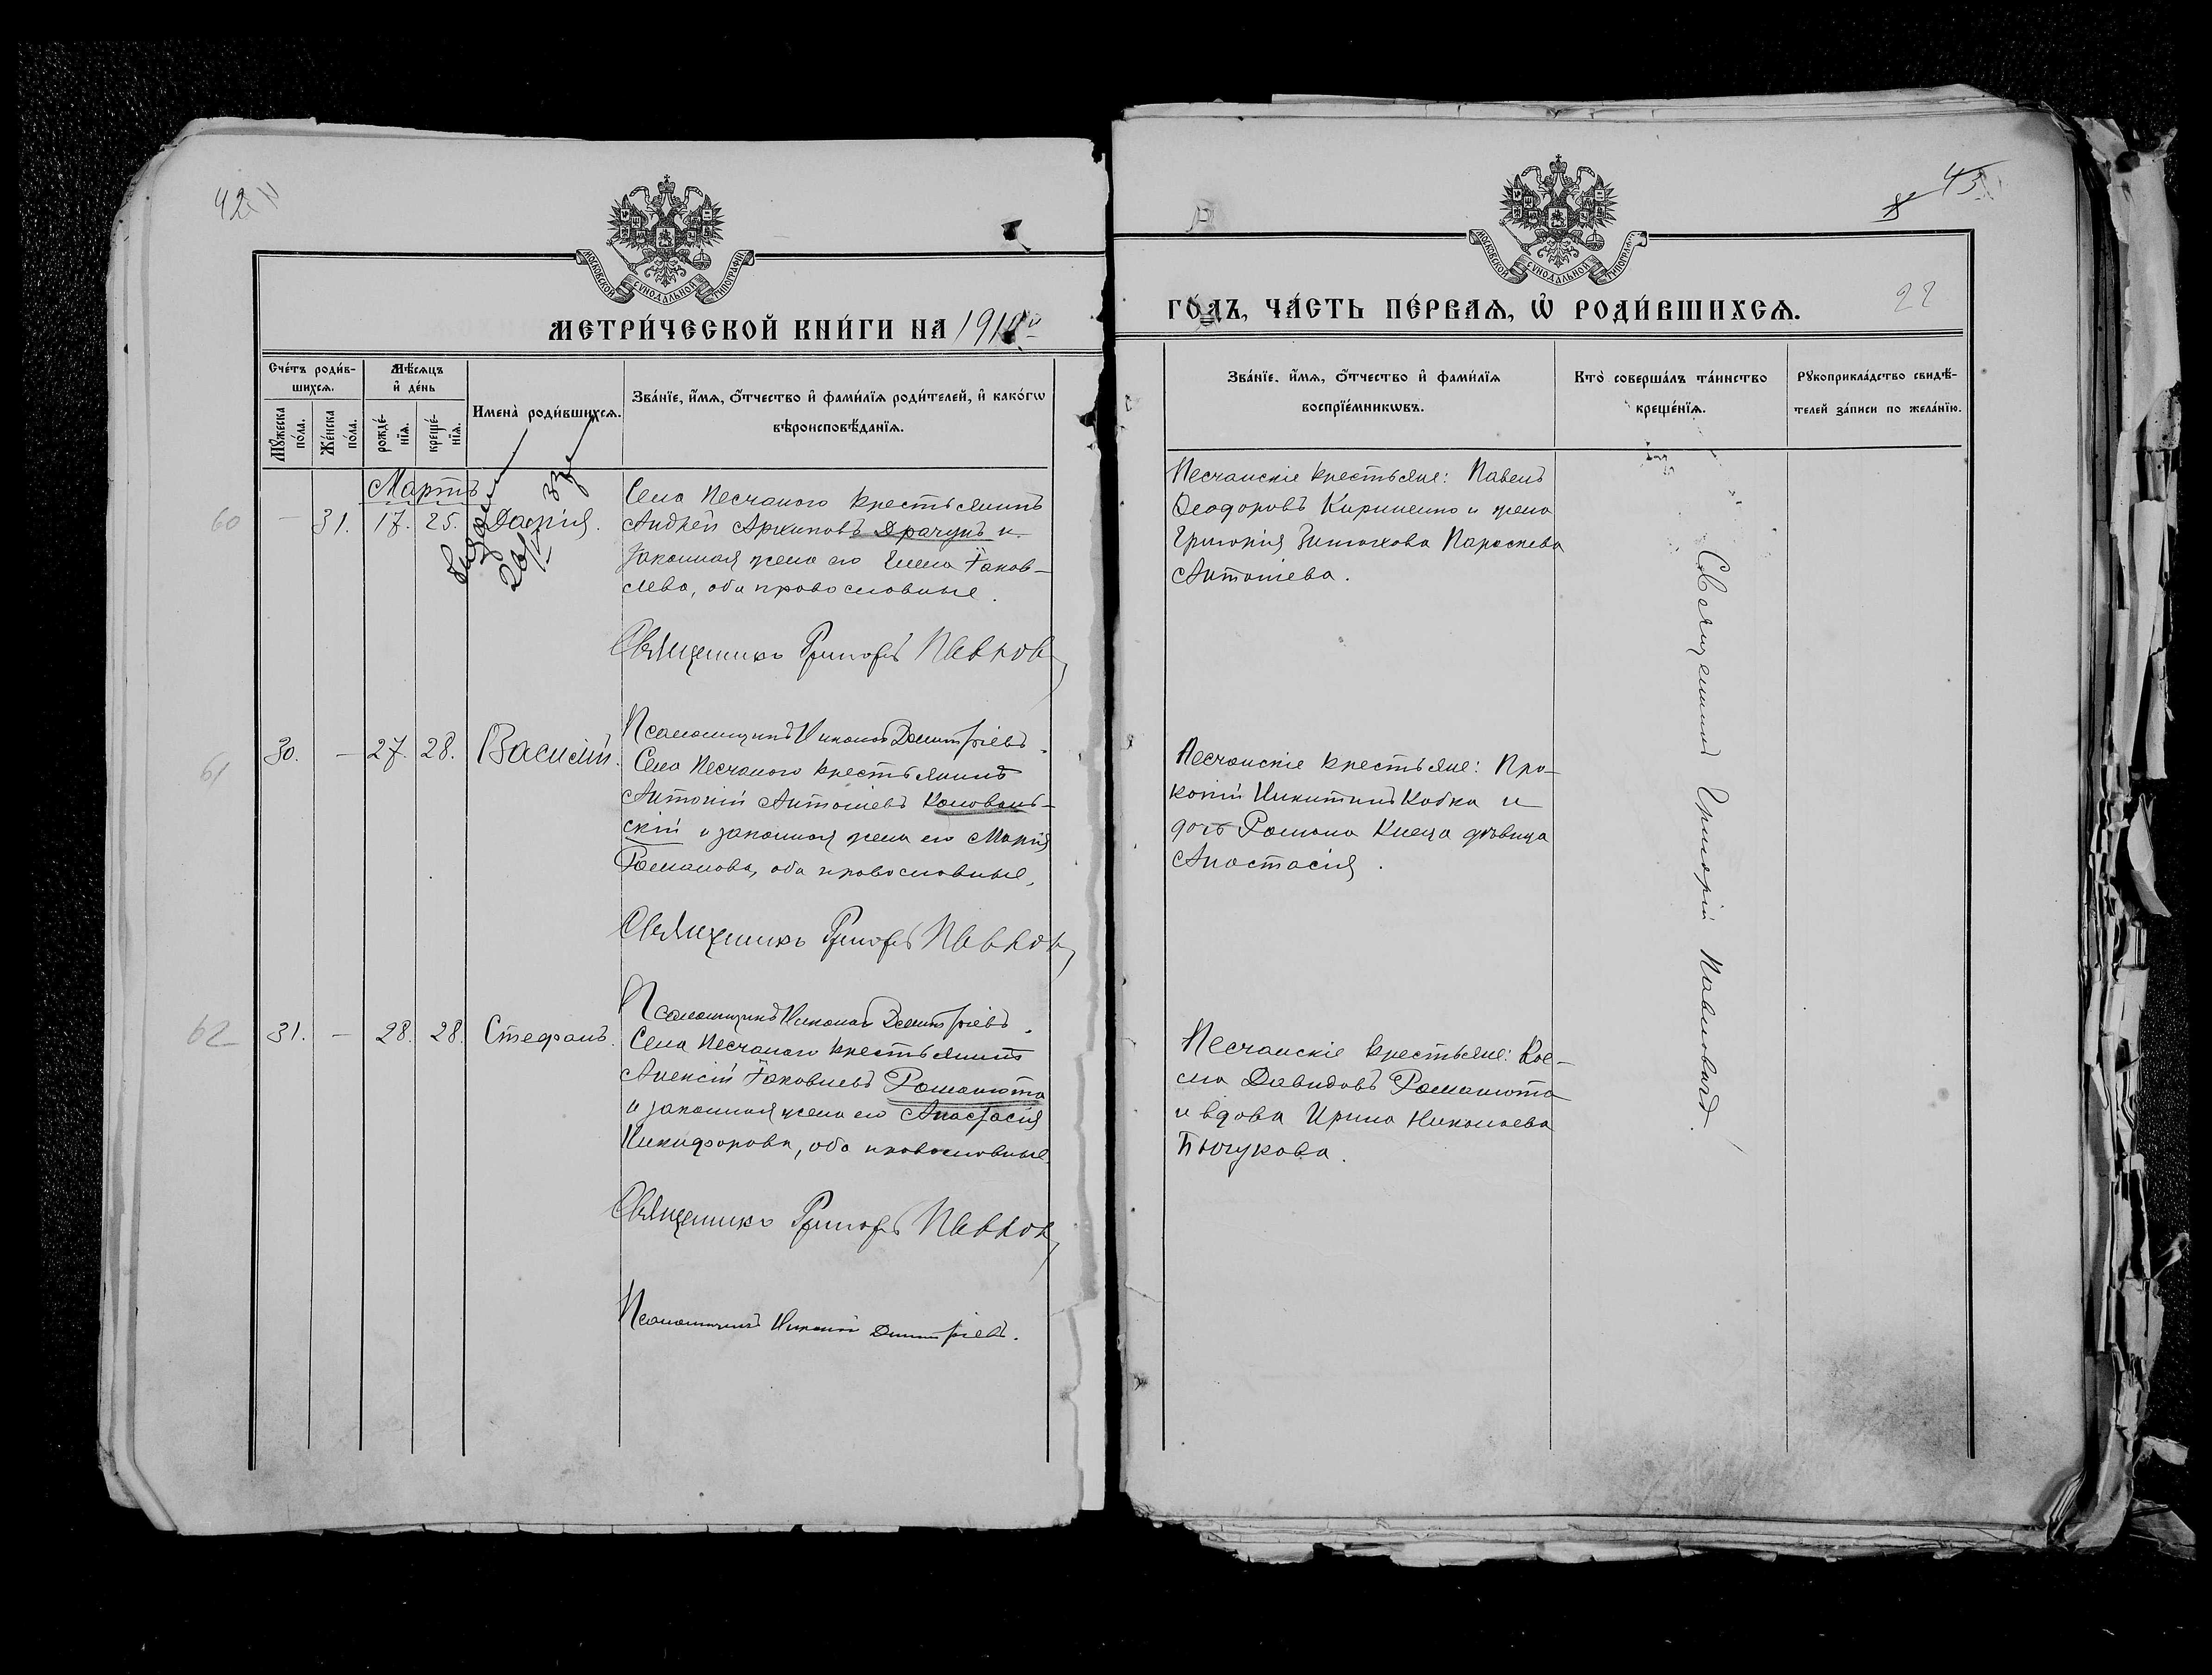 42
МОСКОВСКОЙ СУНОДАЛЬНОЙ ТИПОГРАФІИ
МЕТРИ́ЧЕСКОЙ КНИ́ГИ НА 191
Сче́тъ роди́в-
шихсѧ.
Мꙋ́жеска по́ла.
Же́нска по́ла.
Мѣ́сѧцъ
и҆ де́нь
рожде́-
нїѧ.
креще́-
нїѧ.
Имена̀ роди́вшихсѧ.
Зва́нїе, и҆́мѧ, ѻ҆́тчество и҆ фами́лїѧ роди́телей, и҆ како́гѡ
вѣроисповѣ́данїѧ.
Мартъ
60
— 31. 17. 25. Дарія.
Села Песчаного крестьянинъ
Андрей Архиповъ Драчунъ и
законная жена его Елена Іаков-
лева, оба православные.
Священникъ Григорій Павлов
Псаломщикъ Николай Димитріевъ.
61
30. — 27. 28. Василій.
Села Песчаного крестьянинъ
Антоній Антоніевъ Коноваль-
скій и законная жена его Марія
Романова, оба православные.
Священникъ Григорій Павлов
Псаломщикъ Николай Димитріевъ.
62
31. — 28. 28. Стефанъ.
Села Песчаного крестьянинъ
Алексій Іаковлевъ Романюта
и законная жена его Анастасія
Никифорова, оба православные.
Священникъ Григорій Павлов
Псаломщикъ Николай Димитріевъ.
МОСКОВСКОЙ СУНОДАЛЬНОЙ ТИПОГРАФІИ
ГО́ДЪ, ЧА́СТЬ ПЕ́РВАѦ, Ѡ҆ РОДИ́ВШИХСѦ.
22
Зва́нїе, и҆́мѧ, ѻ҆́тчество и҆ фами́лїѧ
воспрїе́мниковъ.
Кто̀ соверша́лъ та́инство
креще́нїѧ.
Рꙋкоприкла́дство свидѣ́-
телей за́писи по жела́нїю.
Песчанскіе крестьяне: Павелъ
Ѳеодоровъ Кириленко и жена
Григорія Параскева
Антоніева.
Песчанскіе крестьяне: Про-
копій Никитинъ Кобка и
дочь Романа дѣвица
Анастасія.
Песчанскіе крестьяне: Кос-
ма Давидовъ Романюта
и вдова Ирина Николаева
Бычукова.
Священникъ Григорій Павловичъ.